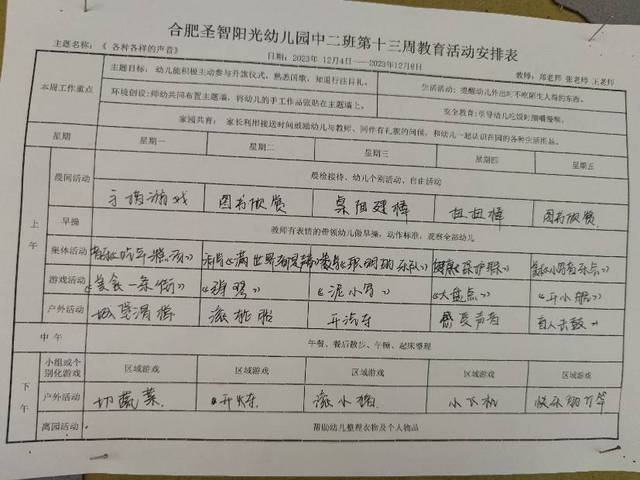 合肥圣智阳光幼儿园中二班第十三周教育活动安排表
主题名称：《 各种各样的声音》 日期：2023年 12月4日——2023年12月8日 教师：郑老师 张老师 王老师
本周工作重点 主题目标：幼儿能积极主动参与升旗仪式，熟悉国歌，知道行注目礼。 生活活动：提醒幼儿外出时不吃陌生人给的东西。
环境创设：师幼共同布置主题墙，将幼儿的手工作品张贴在主题墙上。 安全教育：引导幼儿吃饭时细嚼慢咽。
家园共育： 家长利用接送时间鼓励幼儿与教师、同伴有礼貌的问候，和幼儿一起认识在园的各种生活用品。
星期 星期一 星期二 星期三 星期四 星期五
上午 晨间活动 晨检接待、幼儿个别活动、自由活动
手指游戏 图书欣赏 桌面建构 扭扭棒 图书欣赏
早操 教师有表情的带领幼儿做早操，动作标准，观察全部幼儿
集体活动 《满世界 声 》 健康《保护 》
游戏活动 《美食一条街》 《 》 《泥小 》 《大盘点》 《开小船》
户外活动 玩滑梯 滚轮胎 开汽车 声音 盲人击鼓
中午 午餐、餐后散步、午睡、起床整理
下午 小组或个别化活动 区域游戏 区域游戏 区域游戏 区域游戏 区域游戏
户外活动 切蔬菜 开火车 滚小 小飞机 快乐
离园活动 帮助幼儿整理衣物及个人物品